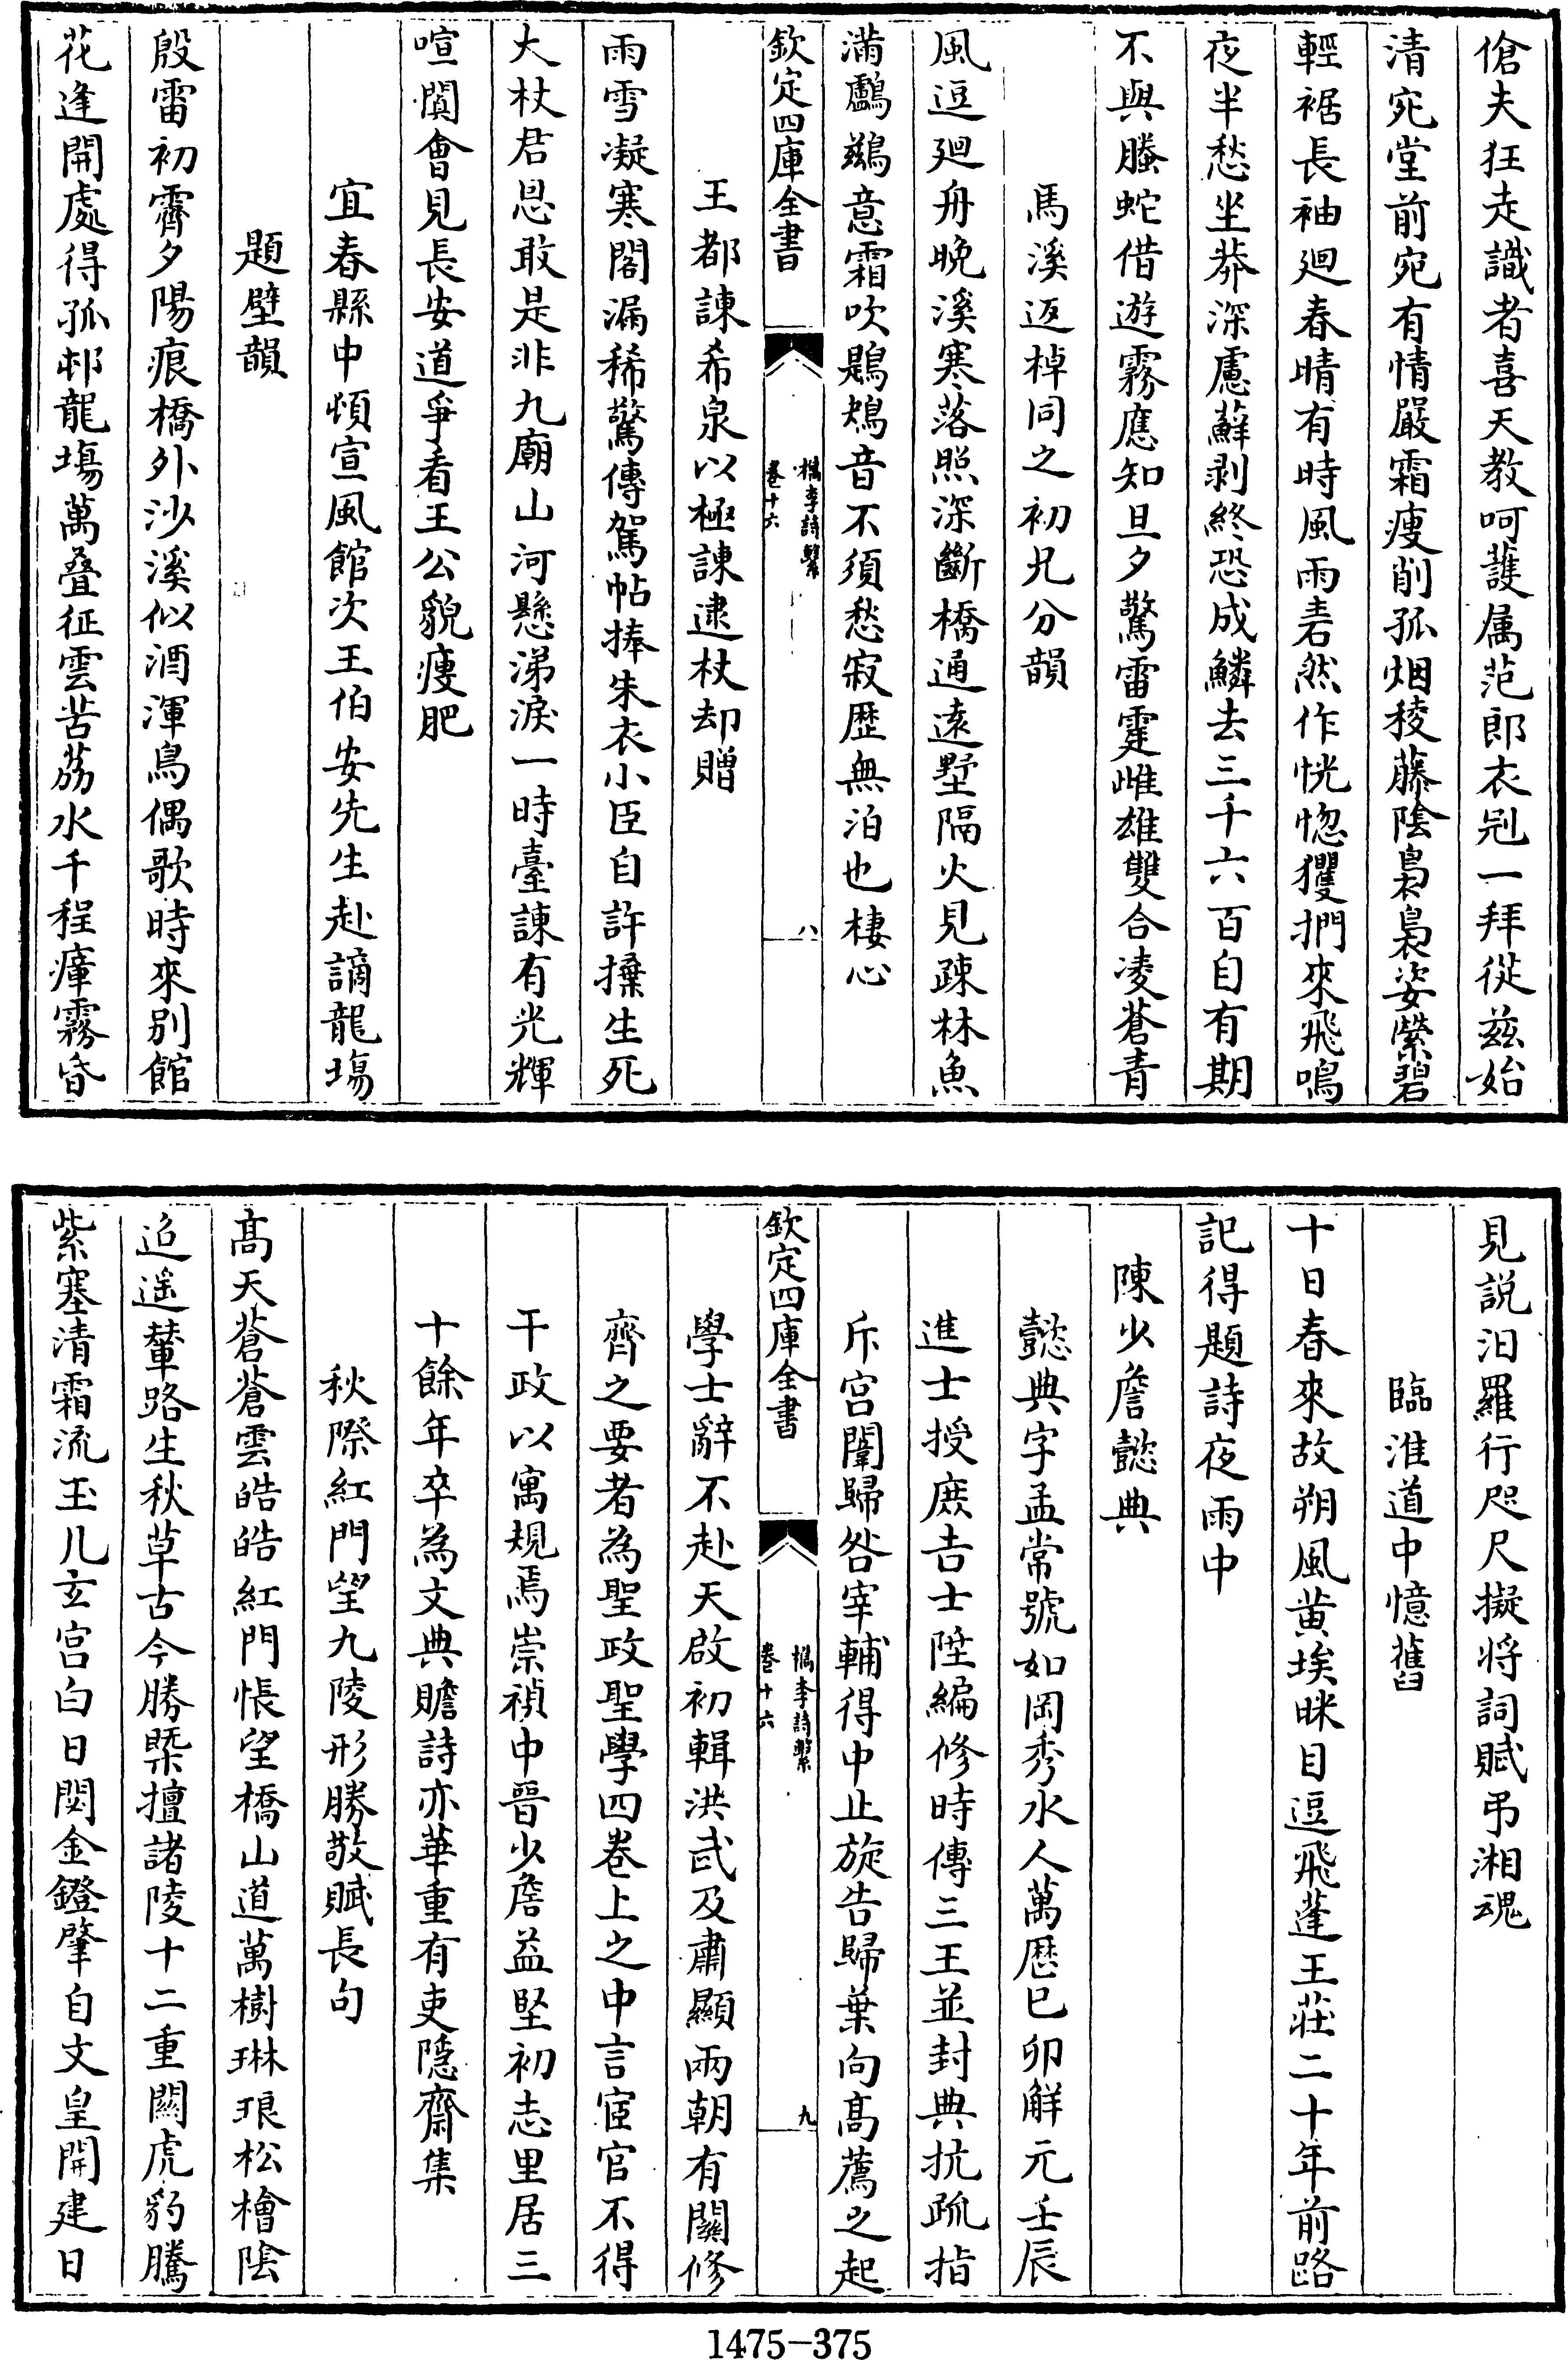 傖夫狂走識者喜天教呵護属范郎衣冠一拜從兹始
清宛堂前宛有情嚴霜瘦削孤烟稜藤陰裊裊姿縈碧
輕裾長袖廻春晴有時風雨砉然作恍惚玃捫來飛鳴
夜半愁坐莽深慮蘚剥終恐成鱗去三千六百自有期
不與螣蛇借遊霧應知旦夕驚雷霆雌雄雙合凌蒼青
馬溪返棹同之初兄分韻
風逗廻舟晚溪寒落照深斷橋通逺墅隔火見疎林魚
滿鸕鷀意霜吹鶗鴂音不須愁寂歴無泊也棲心
欽定四庫全書
檇李詩繫
卷十六
八
王都諫希泉以極諫逮杖却贈
雨雪凝寒閣漏稀驚傳駕帖捧朱衣小臣自許摙生死
大杖君恩敢是非九廟山河懸涕淚一時臺諫有光輝
喧闐會見長安道爭看王公貌瘦肥
宜春縣中頓宣風館次王伯安先生赴謫龍塲
題壁韻
殷雷初霽夕陽痕橋外沙溪似酒渾鳥偶歌時來别館
花逢開處得孤邨龍塲萬叠征雲苦荔水千程瘴霧昏
見説汨羅行咫尺擬将詞賦弔湘魂
臨淮道中憶舊
十日春來故朔風黄埃眯目逗飛蓬王莊二十年前路
記得題詩夜雨中
陳少詹懿典
懿典字孟常號如岡秀水人萬歴巳卯解元壬辰
進士授庶吉士陞編修時傳三王並封典抗疏指
斥宫闈歸咎宰輔得中止旋告歸葉向髙薦之起
欽定四庫全書
檇李詩繫
卷十六
九
學士辭不赴天啟初輯洪武及肅顯兩朝有闗修
齊之要者為聖政聖學四卷上之中言宦官不得
干政以寓規焉崇禎中晋少詹益堅初志里居三
十餘年卒為文典贍詩亦華重有吏隠齋集
秋際紅門望九陵形勝敬賦長句
髙天蒼蒼雲皓皓紅門悵望橋山道萬樹琳琅松檜隂
迢遥輦路生秋草古今勝槩擅諸陵十二重闗虎豹騰
紫塞清霜流玉几玄宫白日閟金鐙肇自文皇開建日
1475-375